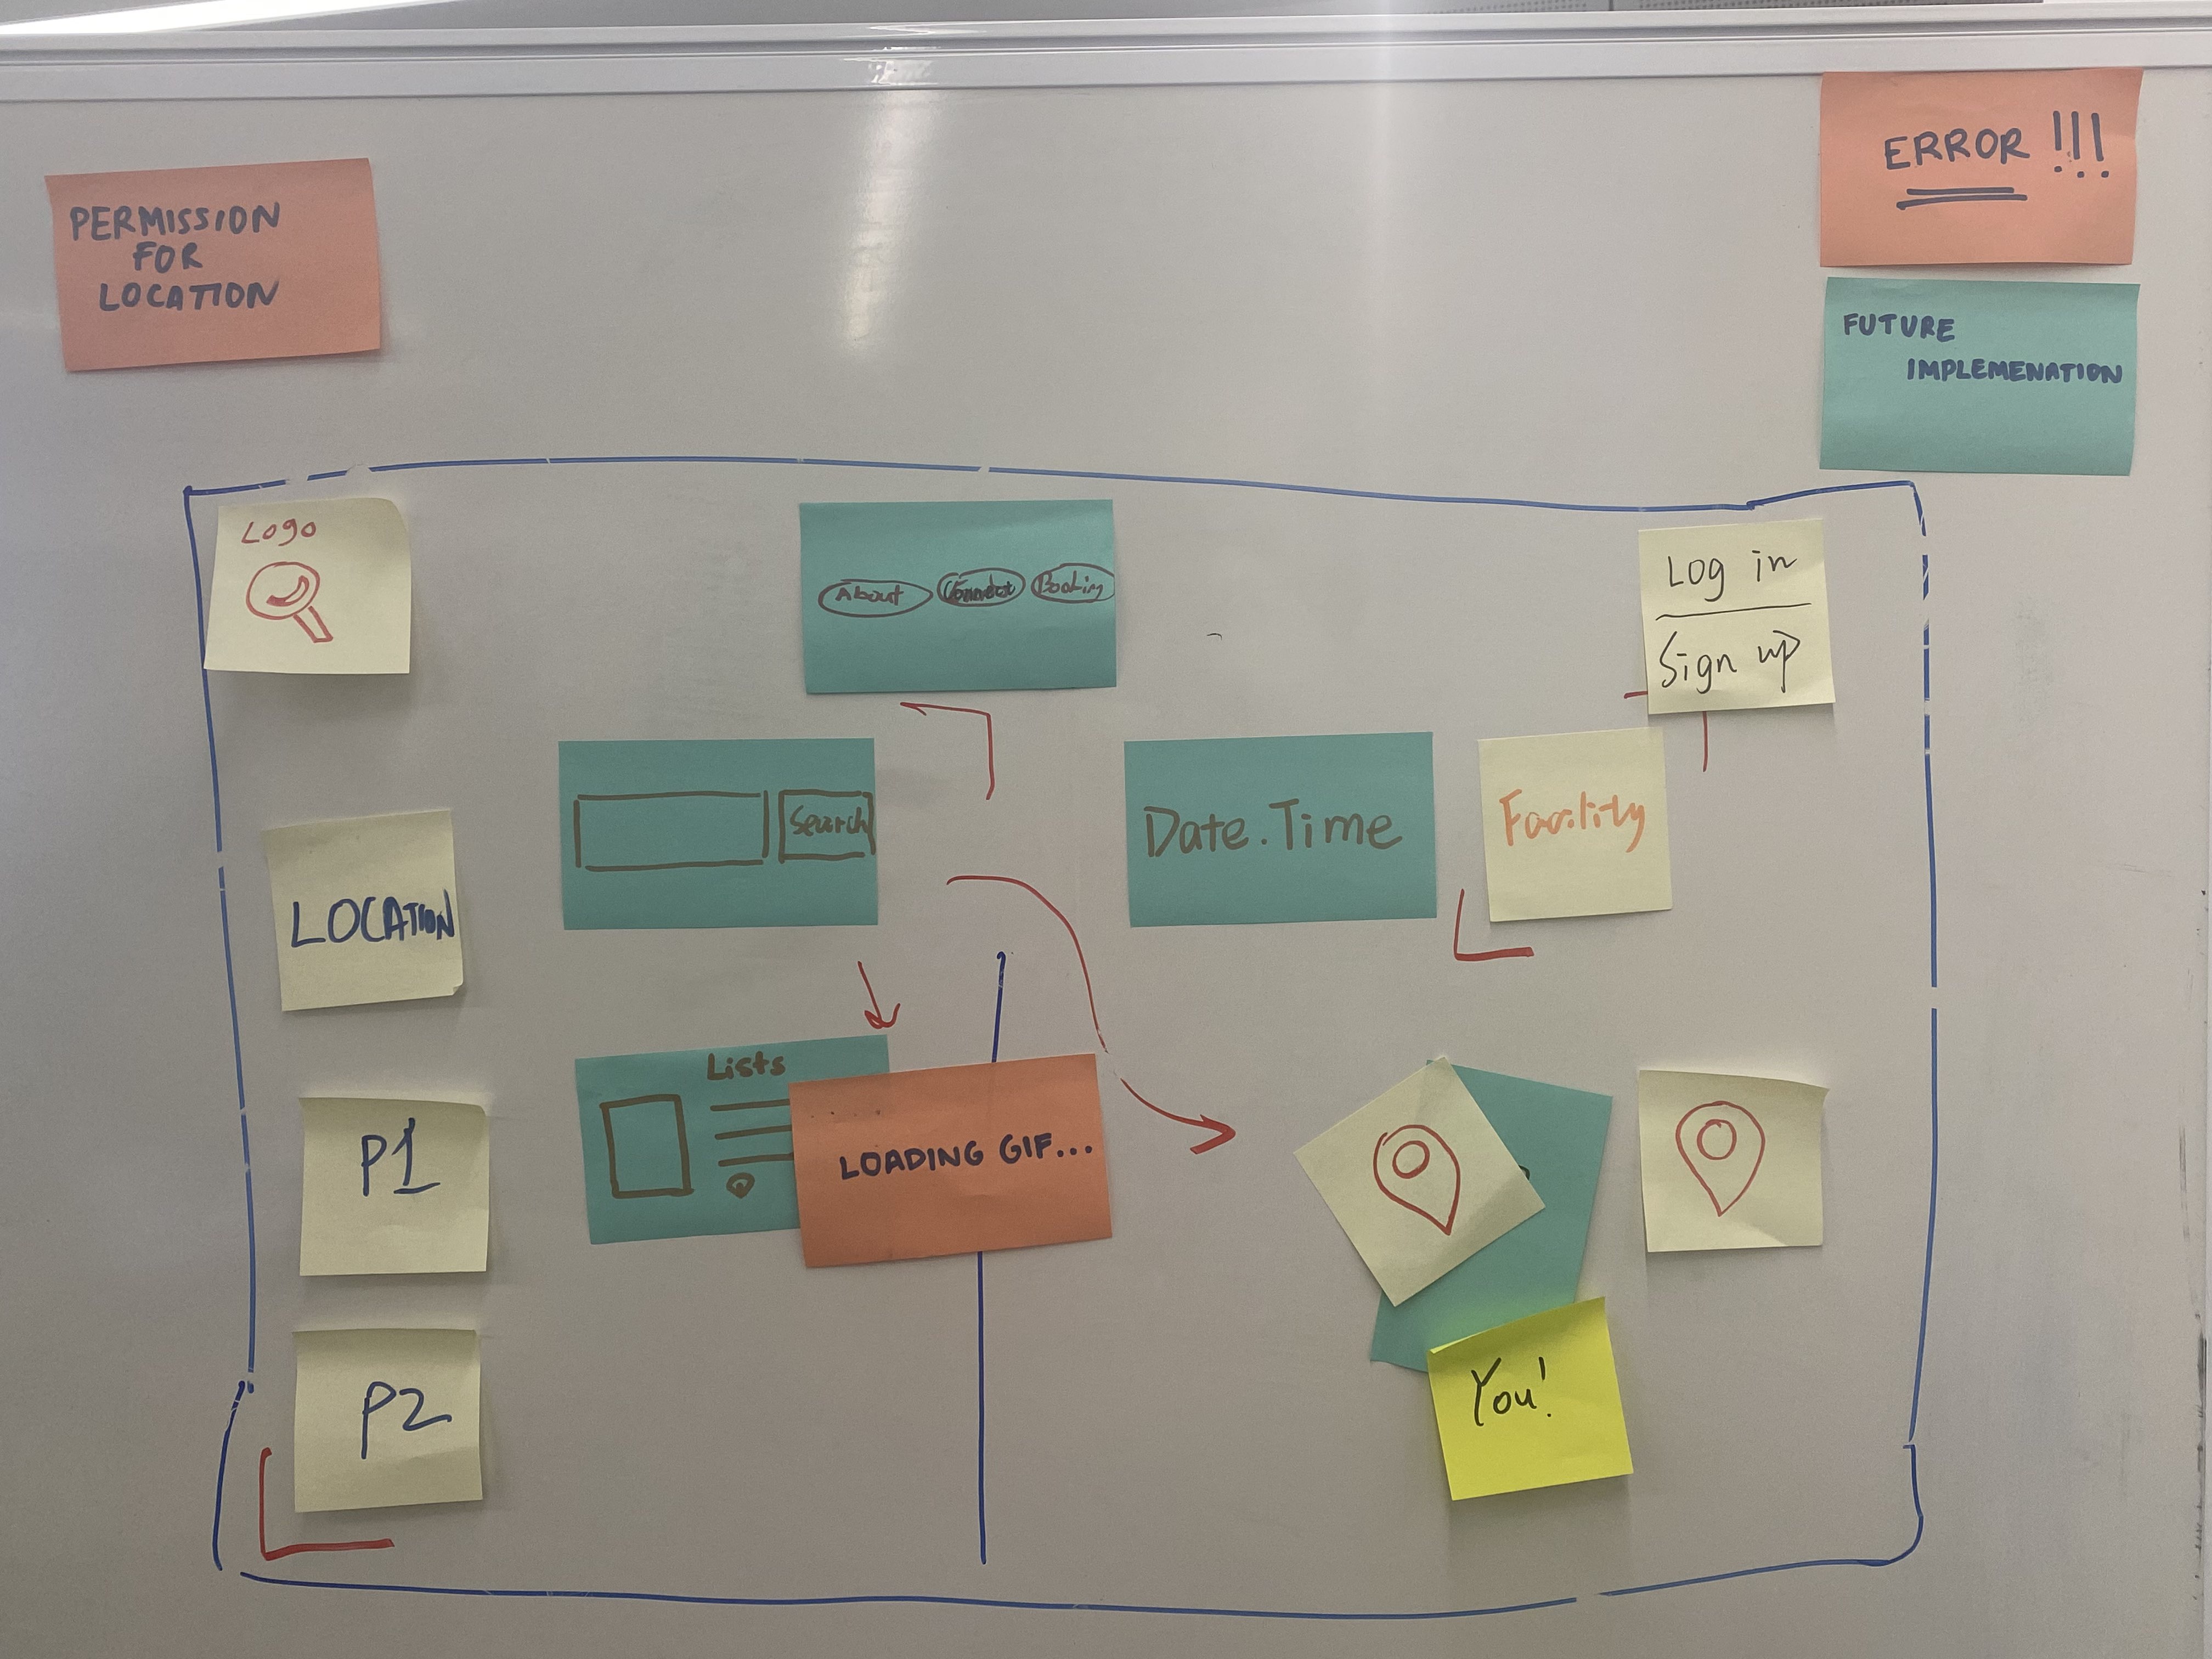 PERMISSION
FOR
LOCATION
ERROR !!!
FUTURE
IMPLEMENATION
Logo
About
Connect
Booking
Log in
Sign up
Search
Date.Time
Facility
LOCATION
Lists
LOADING GIF...
P1
P2
You!